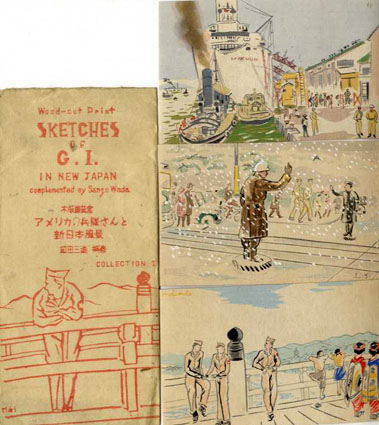 Wood-cut Print
SKETCHES
OF
G. I.
IN NEW JAPAN
complemented by Sanzo Wada
木版画蒐
アメリカの兵隊さんと
新日本風景
和田三造 編
COLLECTION 1